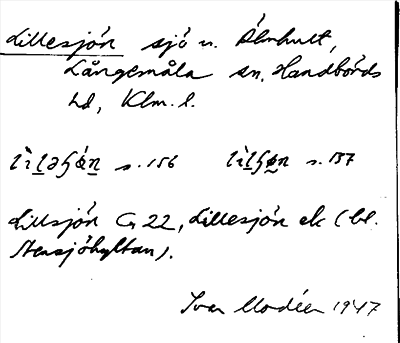 Lillesjön sjö n. Älmhult,
Långemåla sn, Handbörds
hd, Klm. l.
s. 156 s. 157
Lillsjön G 22, Lillesjön ek (bl.
Stensjöhyltan).
Ivar Modéer 1947